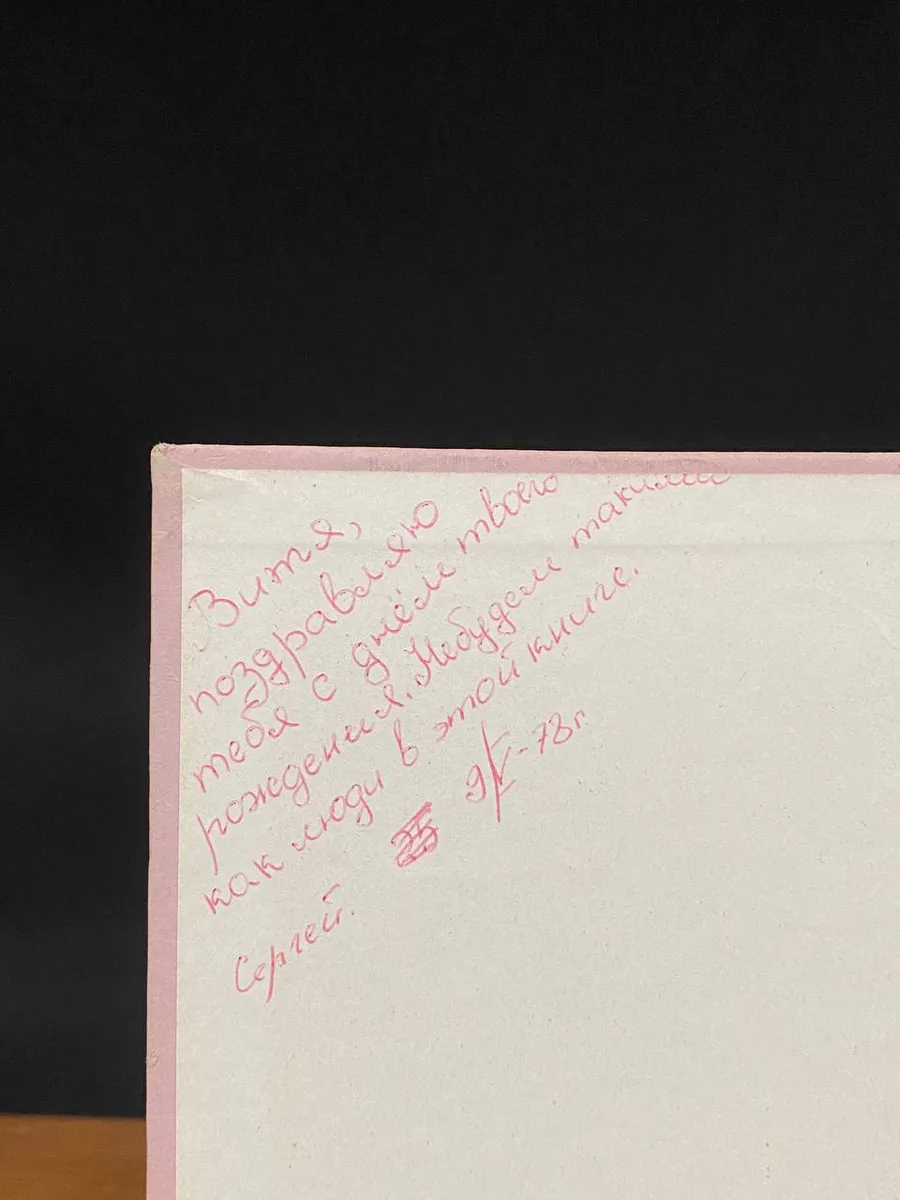 Витя,
поздравляю
тебя с днём твоего
рождения. Небудем такими
как люди в этой книге.
9/V-78г.
Сергей.